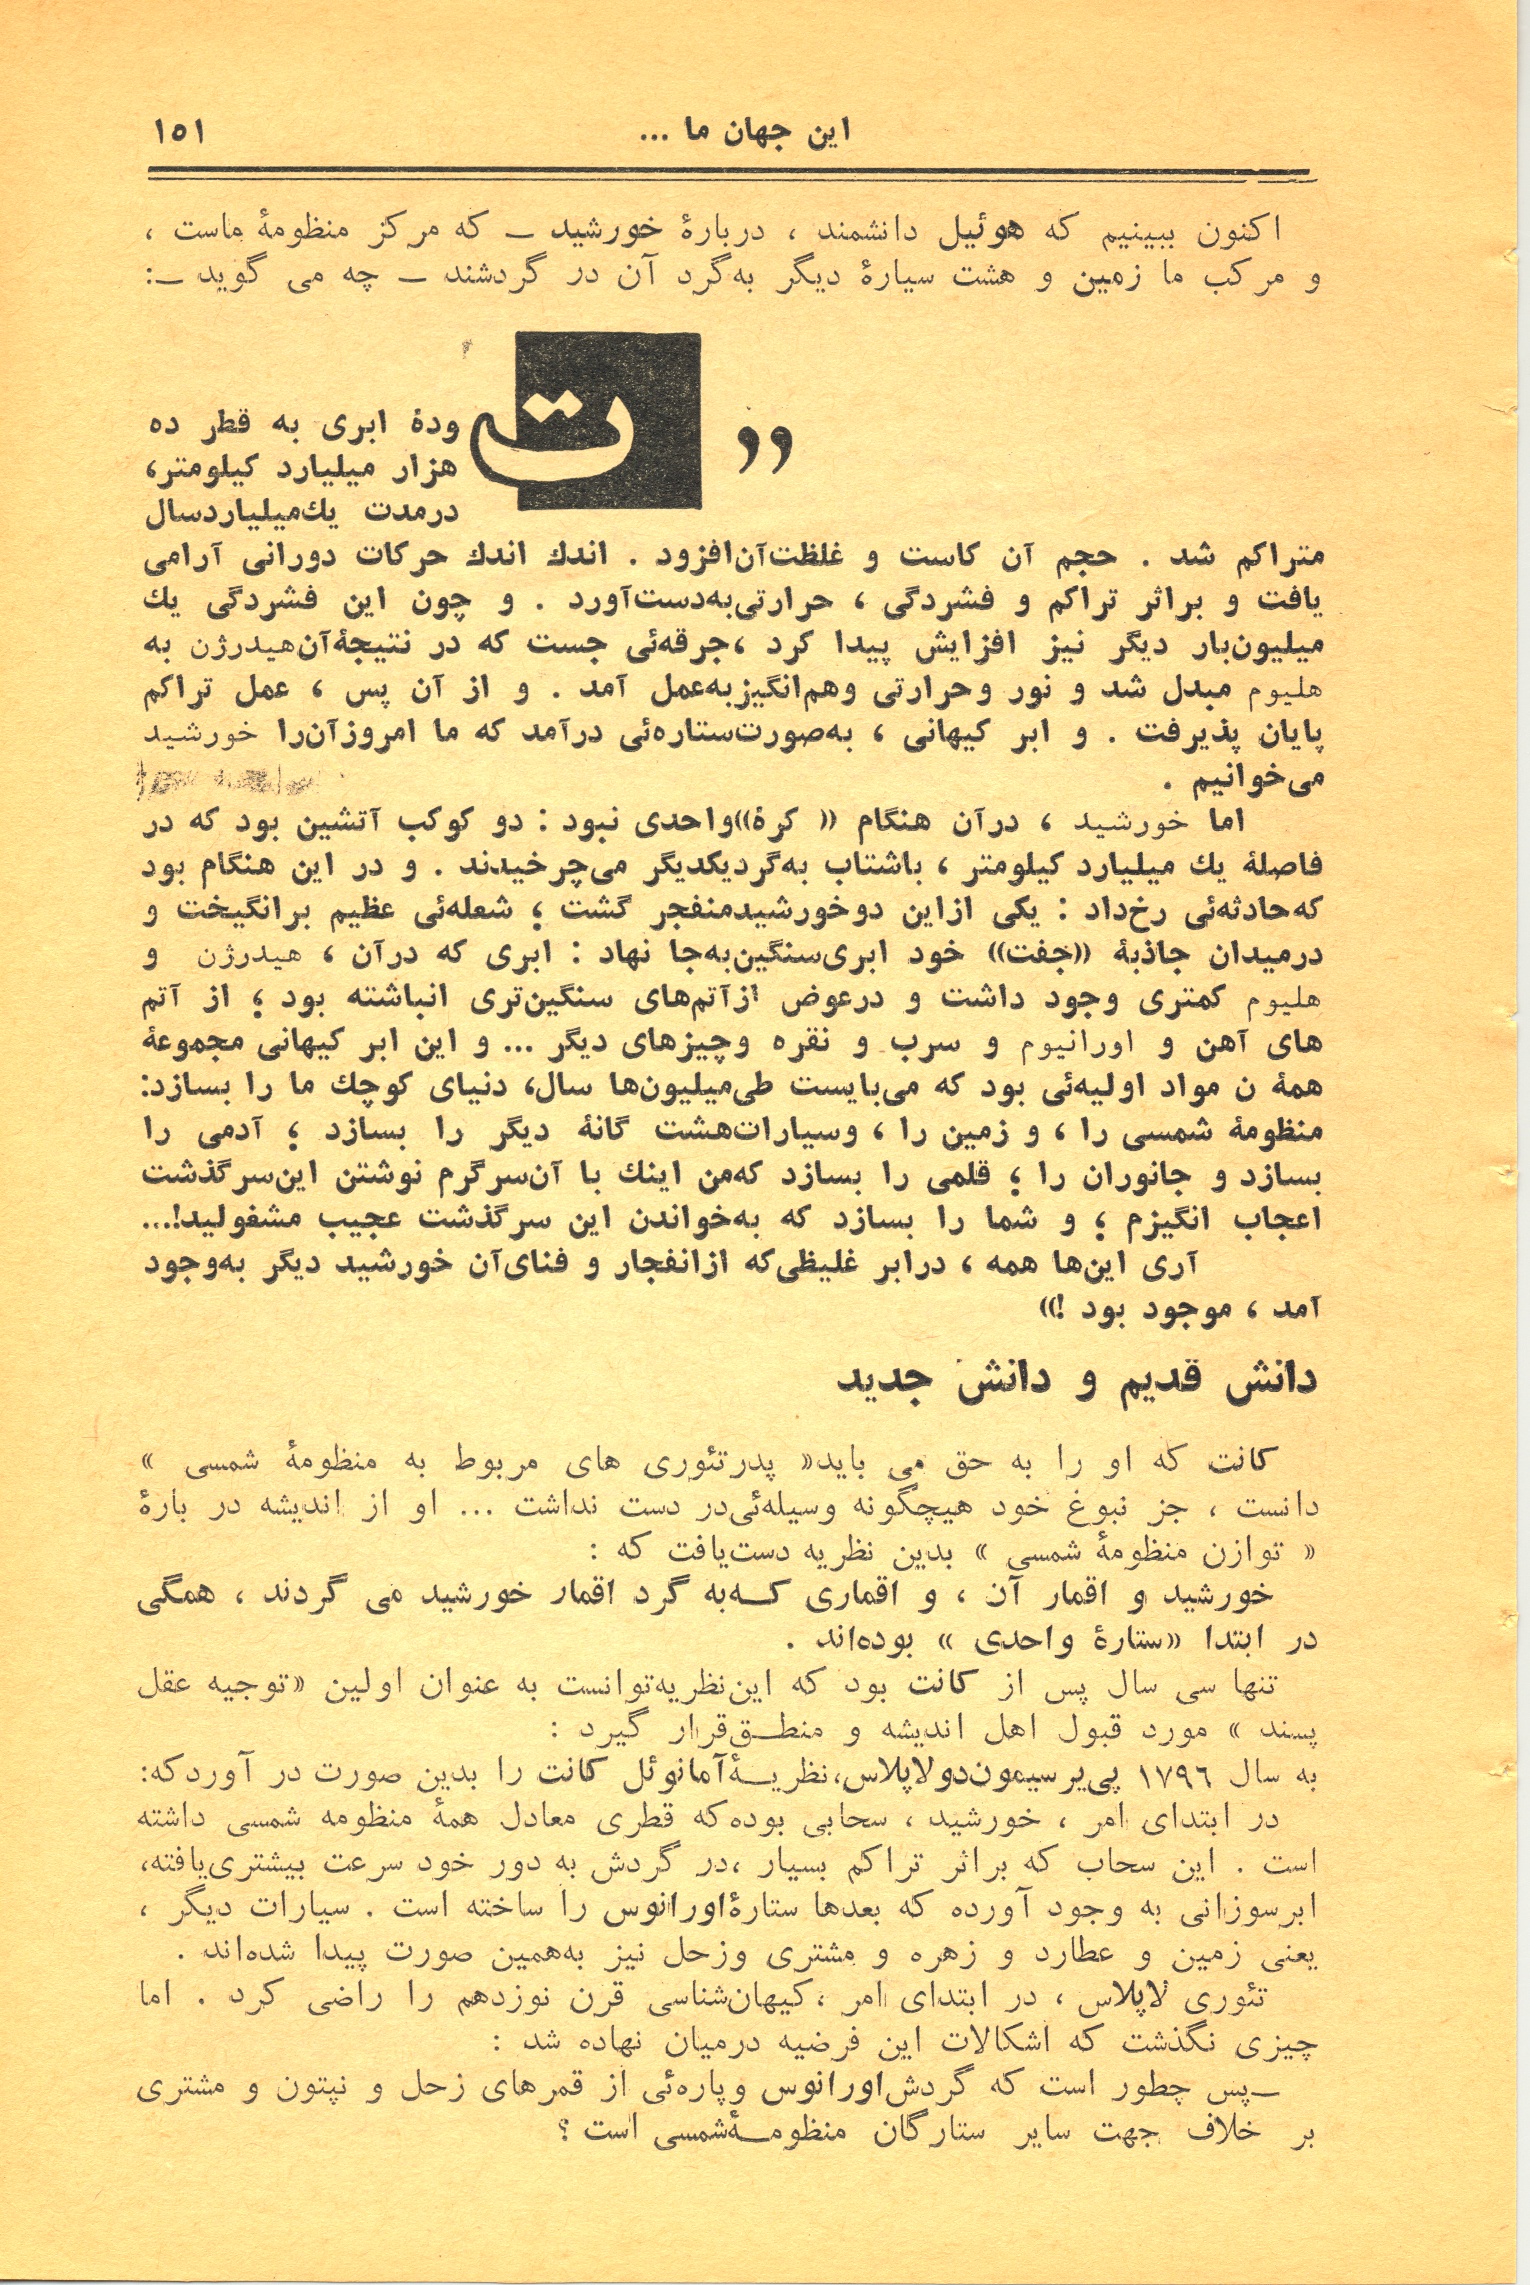 این جهان ما ...
۱۵۱
اکنون ببینیم که هوئیل دانشمند ، دربارهٔ خورشید ـ که مرکز منظومهٔ ماست ،
و مرکب ما زمین و هشت سیارهٔ دیگر به‌گرد آن در گردشند ـ چه می گوید ـ:
,, ت
ودهٔ ابری به قطر ده
هزار میلیارد کیلومتر،
درمدت یك‌میلیاردسال
متراکم شد . حجم آن کاست و غلظت‌آن‌افزود . اندك اندك حرکات دورانی آرامی
یافت و براثر تراکم و فشردگی ، حرارتی‌به‌دست‌آورد . و چون این فشردگی یك
میلیون‌بار دیگر نیز افزایش پیدا کرد ،جرقه‌ئی جست که در نتیجهٔ‌آن‌هیدرژن به
هلیوم مبدل شد و نور وحرارتی وهم‌انگیزبه‌عمل آمد . و از آن پس ، عمل تراکم
پایان پذیرفت . و ابر کیهانی ، به‌صورت‌ستاره‌ئی درآمد که ما امروزآن‌را خورشید
می‌خوانیم .
اما خورشید ، درآن هنگام « کرهٔ»واحدی نبود : دو کوکب آتشین بود که در
فاصلهٔ یك میلیارد کیلومتر ، باشتاب به‌گردیکدیگر می‌چرخیدند . و در این هنگام بود
که‌حادثه‌ئی رخ‌داد : یکی ازاین دوخورشیدمنفجر گشت ؛ شعله‌ئی عظیم برانگیخت و
درمیدان جاذبهٔ «جفت» خود ابری‌سنگین‌به‌جا نهاد : ابری که درآن ، هیدرژن و
هلیوم کمتری وجود داشت و درعوض ازآتم‌های سنگین‌تری انباشته بود ؛ از آتم
های آهن و اورانیوم و سرب و نقره وچیزهای دیگر ... و این ابر کیهانی مجموعهٔ
همهٔ ن مواد اولیه‌ئی بود که می‌بایست طی‌میلیون‌ها سال، دنیای کوچك ما را بسازد:
منظومهٔ شمسی را ، و زمین را ، وسیارات‌هشت گانهٔ دیگر را بسازد ؛ آدمی را
بسازد و جانوران را ؛ قلمی را بسازد که‌من اینك با آن‌سرگرم نوشتن این‌سرگذشت
اعجاب انگیزم ؛ و شما را بسازد که به‌خواندن این سرگذشت عجیب مشغولید!...
آری این‌ها همه ، درابر غلیظی‌که ازانفجار و فنای‌آن خورشید دیگر به‌وجود
آمد ، موجود بود !»
دانش قدیم و دانش جدید
کانت که او را به حق می باید« پدرتئوری های مربوط به منظومهٔ شمسی »
دانست ، جز نبوغ خود هیچگونه وسیله‌ئی‌در دست نداشت ... او از اندیشه در بارهٔ
« توازن منظومهٔ شمسی » بدین نظریه دست‌یافت که :
خورشید و اقمار آن ، و اقماری کـه‌به گرد اقمار خورشید می گردند ، همگی
در ابتدا «ستارهٔ واحدی » بوده‌اند .
تنها سی سال پس از کانت بود که این‌نظریه‌توانست به عنوان اولین «توجیه عقل
پسند » مورد قبول اهل اندیشه و منطـق‌قرار گیرد :
به سال ۱۷۹۶ پی‌یرسیمون‌دولاپلاس،نظریـهٔ‌آمانوئل کانت را بدین صورت در آوردکه:
در ابتدای امر ، خورشید ، سحابی بوده‌که قطری معادل همهٔ منظومه شمسی داشته
است . این سحاب که براثر تراکم بسیار ،در گردش به دور خود سرعت بیشتری‌یافته،
ابرسوزانی به وجود آورده که بعدها ستارهٔ‌اورانوس را ساخته است . سیارات دیگر ،
یعنی زمین و عطارد و زهره و مشتری وزحل نیز به‌همین صورت پیدا شده‌اند .
تئوری لاپلاس ، در ابتدای امر ،کیهان‌شناسی قرن نوزدهم را راضی کرد . اما
چیزی نگذشت که اشکالات این فرضیه درمیان نهاده شد :
ـپس چطور است که گردش‌اورانوس وپاره‌ئی از قمرهای زحل و نپتون و مشتری
بر خلاف جهت سایر ستارگان منظومـهٔ‌شمسی است ؟